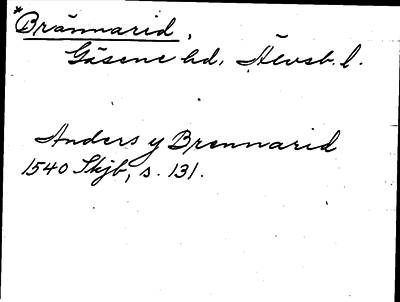 *Brännarid,
Gäsene hd, Älvsb. l.
Anders y Brennarid
1540 Skjb, s. 131.